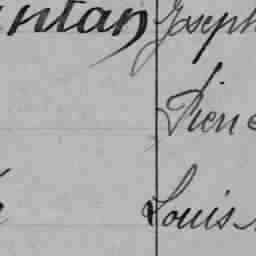 ntan Joseph
Pierre
Louis